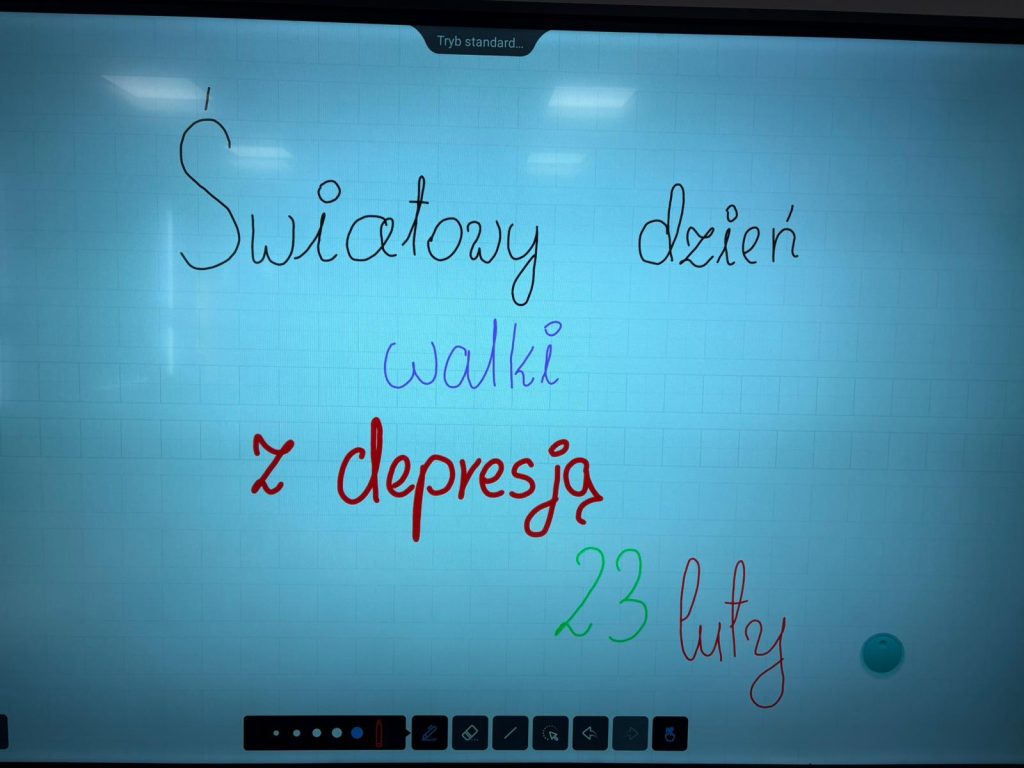 Tryb standard...
Światowy dzień
walki
z depresją
23 luty